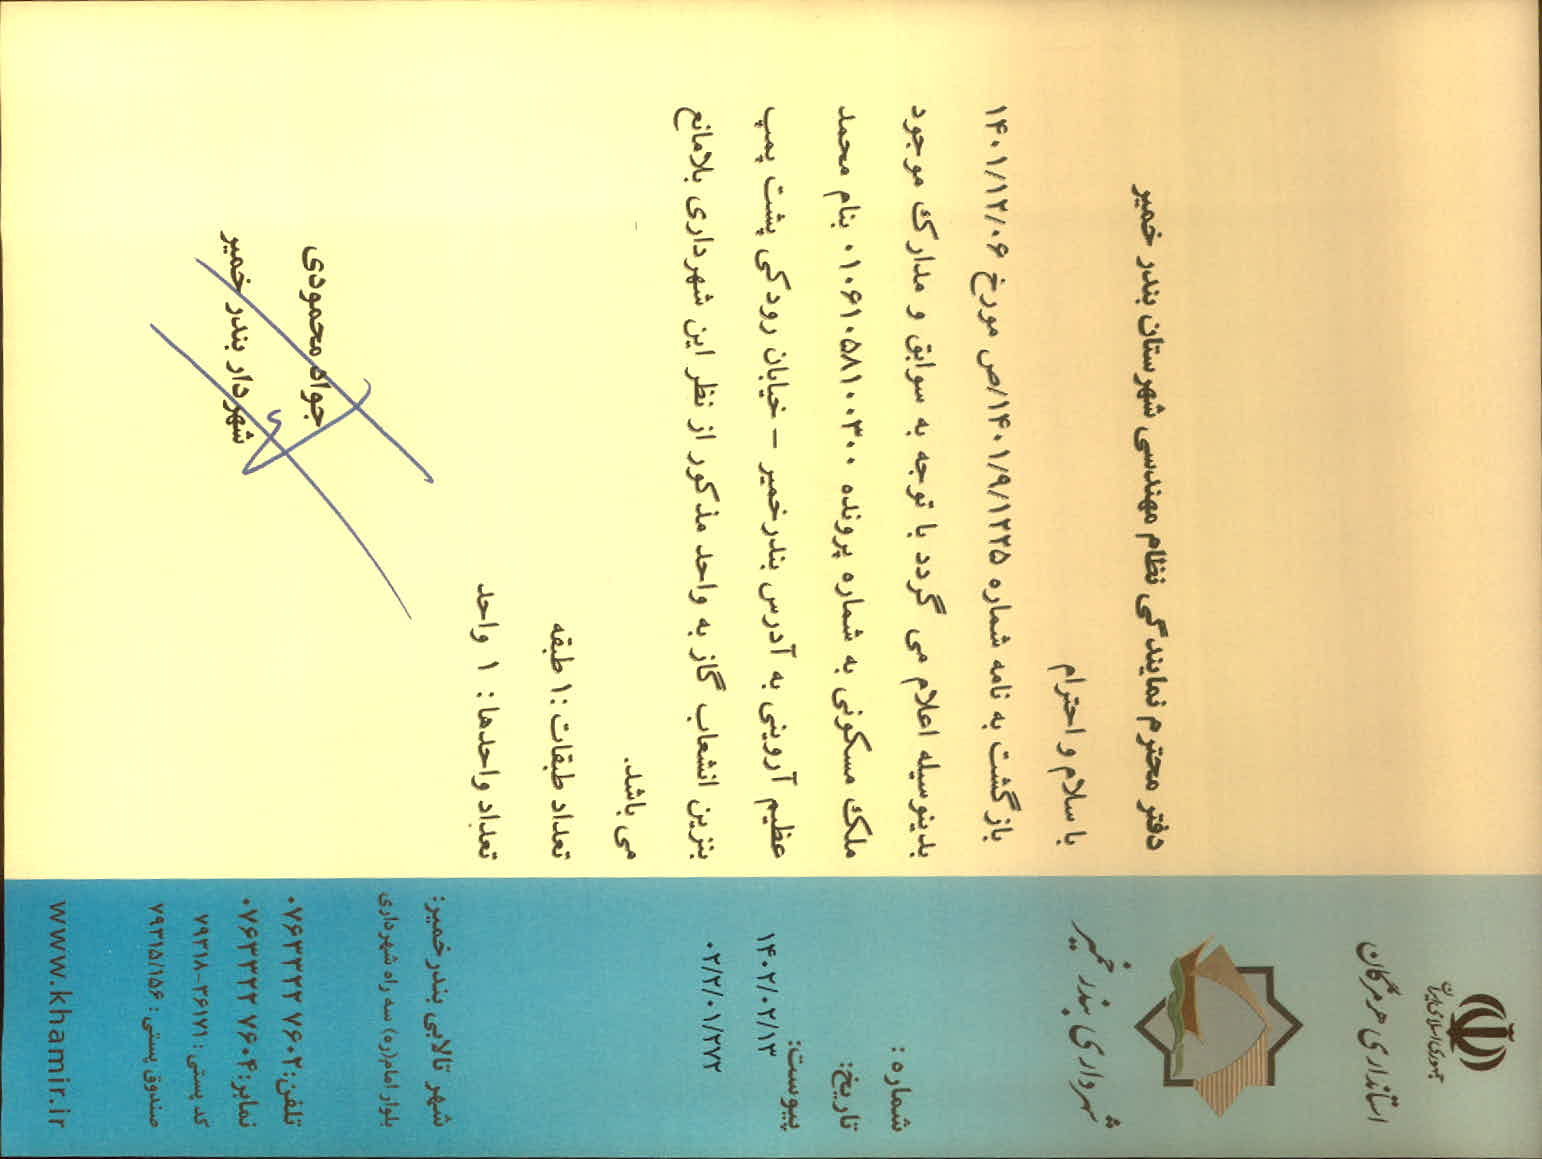 جمهوری اسلامی ایران
استانداری هرمزگان
شهرداری بندر خمیر
شماره :
تاریخ:
پیوست:
۱۴۰۲/۰۲/۱۳
۰۲/۲/۰۱/۲۷۲
شهر تالابی بندرخمیر:
بلوار امام(ره) سه راه شهرداری
تلفن: ۰۷۶۳۳۲۲ ۷۶۰۲
نمابر: ۰۷۶۳۳۲۲ ۷۶۰۴
کد پستی : ۳۶۱۷۱-۷۹۳۱۸
صندوق پستی : ۷۹۳۱۵/۱۵۶
www.khamir.ir
دفتر محترم نمایندگی نظام مهندسی شهرستان بندر خمیر
با سلام و احترام
بازگشت به نامه شماره ۱۴۰۱/۹/۱۲۲۵/ص مورخ ۱۴۰۱/۱۲/۰۶
بدینوسیله اعلام می گردد با توجه به سوابق و مدارک موجود
ملک مسکونی به شماره پرونده ۰۱۰۶۱۰۵۸۱۰۰۳۰۰ بنام محمد
عظیم آروینی به آدرس بندرخمیر – خیابان رودکی پشت پمپ
بنزین انشعاب گاز به واحد مذکور از نظر این شهرداری بلامانع
می باشد.
تعداد طبقات :۱ طبقه
تعداد واحدها: ۱ واحد
جواد محمودی
شهردار بندر خمیر